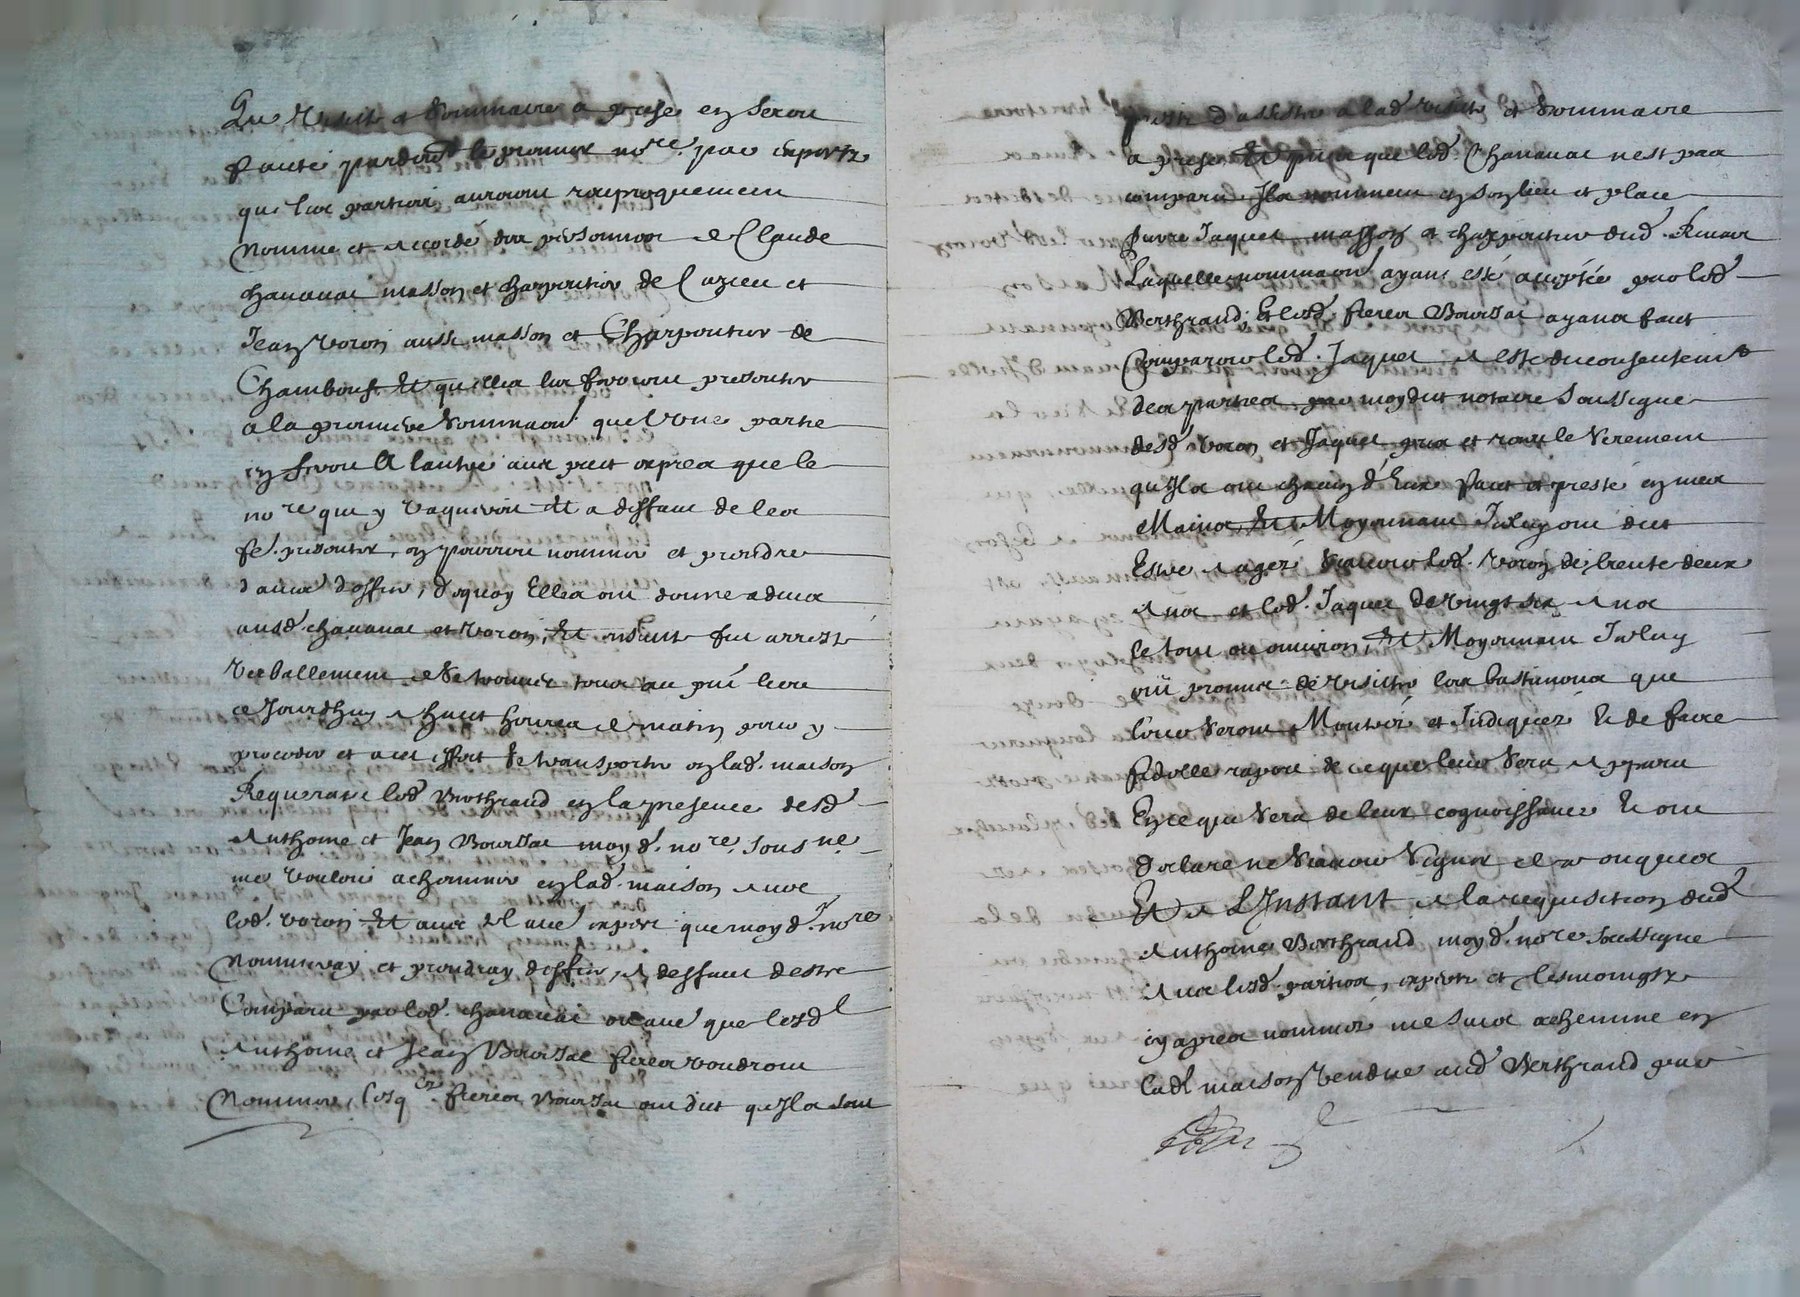 Que Visitte et Sommaire a prise en seron
faitte pardevant le premier no.re par expertz
que les parties auroint reciproquement
Nommé et accordé des personnes de Claude
chavanac masson et charpentier de et
Jean Voron aussi masson et Charpentier de
Chambouf. Et quelles les feroient presenter
a la premiere Sommaon. que l'Une partie
en feroit A lautre aux pnt expres que le
no.re qui y vaqueroit Et a deffaut de les
fe. presenter, en pourroit nommer et prendre
d'autres d'office, de quoy Elles ont donne advis
ausd. chavanac et Voron, Et ensuitte fut arresté
Verballement de Se trouver tous au pnt lieu
ce Jourdhuy a huict heures de matin pour y
proceder et a cet effect se transporter en lad. maison
Requerant led. Berthrand en la presence desd.
Anthoine et Jean Boursac moy d. no.re sous.ne
me vouloir acheminer en lad. maison avec
led. Voron Et avec tel autre expert que moy d. no.re
Nommeray et prendray doffice, a deffaut destre
Comparu par led. chavanac ou autre que lesd.
Anthoine et Jean Boursac freres voudront
Nommer, lesq. freres Boursac ont dict qu'Ils sont
prestz d'assister a lad. visitte et Sommaire
a prise Et puis que led. Chavanac nest pas
comparu Ils nomment en son lieu et place
pierre Jaquet masson et charpentier dud.
Laquelle nommaon. ayant esté acceptée par led.
Berthrand, Et lesd. freres Boursac ayans faict
Comparoir led. Jaquet a esté du consentement
des parties par moy dict notaire Soussigne
desd. Voron et Jaquet pris et receu le Serement
qu'Ils ont chacun d'Eux faict et presté en mes
Mains, Et Moyennant Iceluy ont dict
Estre agés Scavoir led. Voron de trente deux
ans et led. Jaquet de vingt six ans
le tout ou environ, Et Moyennant Iceluy
ont promis de visitter les bastimens que
leur Seront Montrés et Indiqués Et de faire
fidelle raport de ce que leur Sera aparu
En ce que Sera de leur cognoissance Et ont
declaré ne Scavoir Signer de ce enquis
Et a L'Instant a la requisition dud.
Anthoine Berthrand moy d. no.re soussigne
avec lesd. parties, expertz et tesmoingtz
cy apres nommés me suis acheminé en
lad. maison vendue aud. Berthrand par